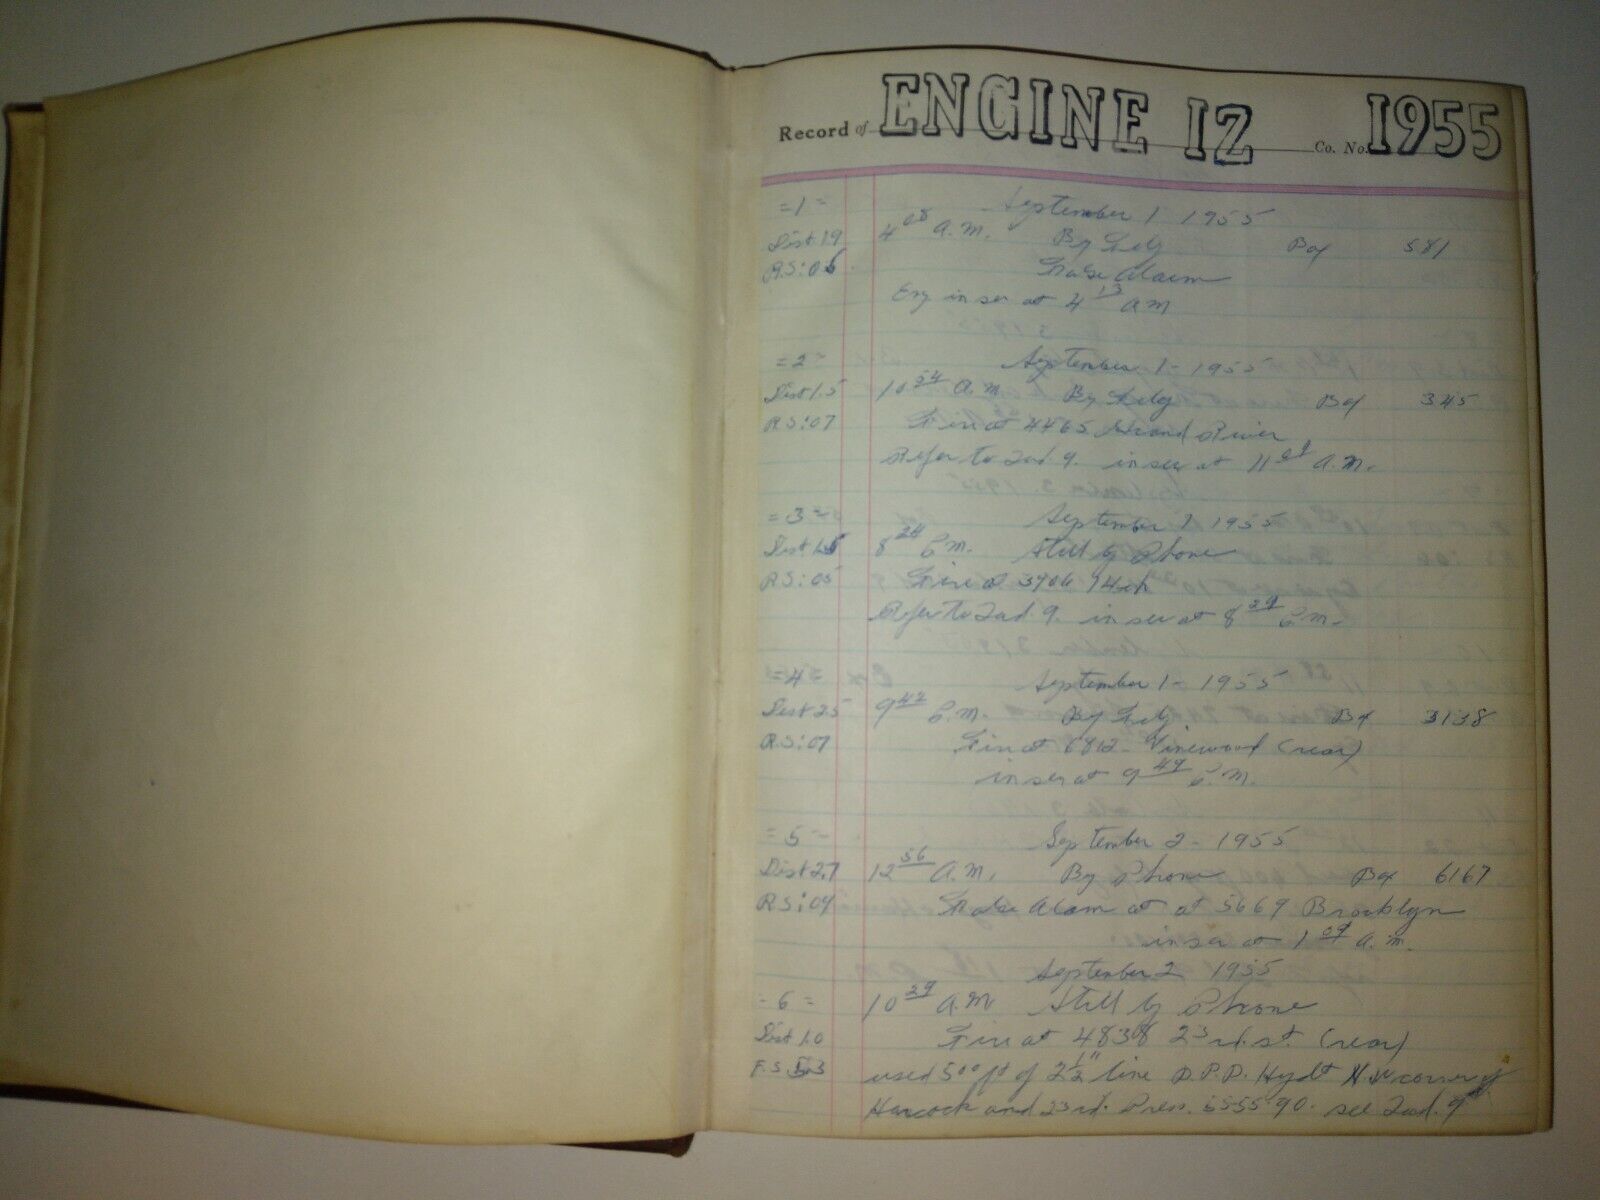 Record of ENGINE 12 Co. No. 1955
=1= September 1 1955
Dist 1.9 4 08 A.M. By Tel'g Box 581
R.S:05 False Alarm
Eng in ser at 4 13 AM
=2= September 1- 1955
Dist 1.5 10 54 A.M. By Tel'g Box 345
R.S:07 Fire at 4465 Grand River
Refer to Lad. 9. in ser at 11 01 A.M.
=3= September 1 1955
Dist 1.5 8 24 P.M. Still by Phone
R.S:05 Fire at 3906 14th
Refer to Lad. 9. in ser at 8 29 P.M.
=4= September 1- 1955
Dist 2.5 9 42 P.M. By Tel'g Box 3138
R.S:07 Fire at 6812- Vinewood (rear)
in ser at 9 49 P.M.
=5= September 2- 1955
Dist 2.7 12 56 A.M. By Phone Box 6167
R.S:09 False Alarm at at 5669 Brooklyn
in ser at 1 09 A.M.
September 2 1955
=6= 10 29 A.M Still by Phone
Dist 1.0 Fire at 4838 23rd. st. (rear)
F.S. used 500 ft of 2½" line Hyd't N.W corner of
Hancock and 23rd. Press. 55 55 90. see Lad. 9